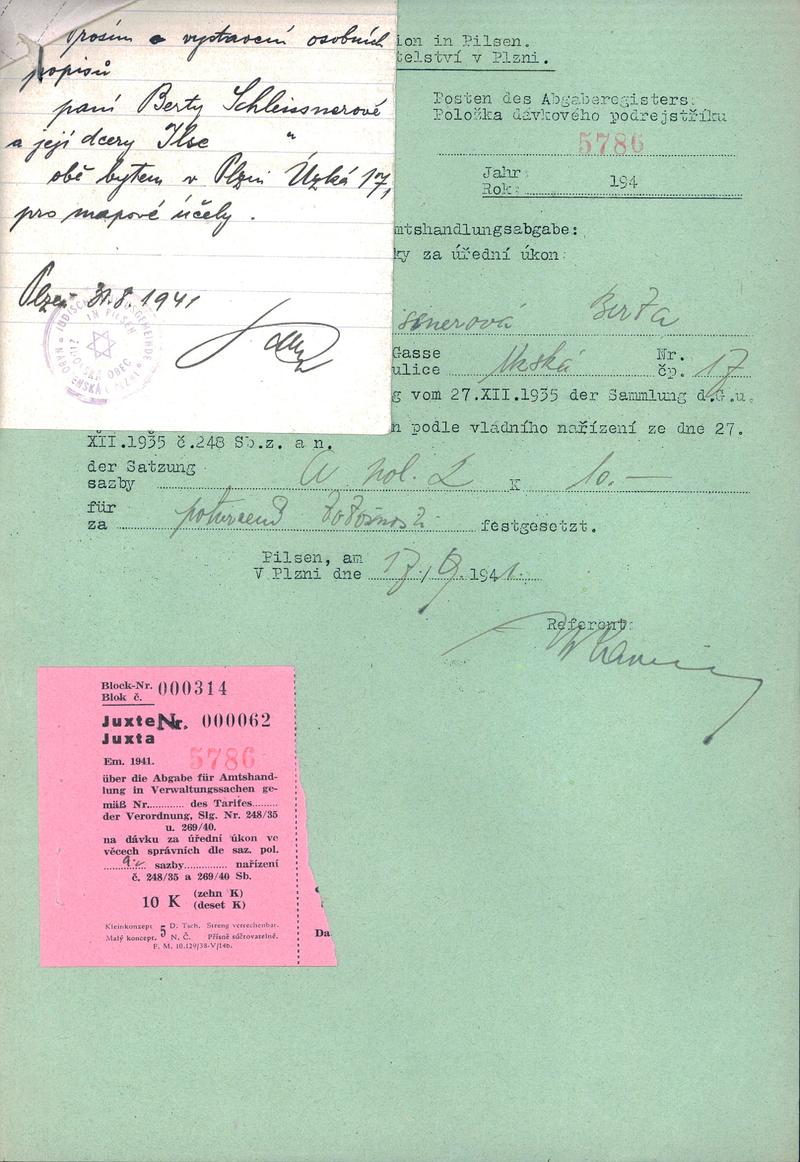 Prosím o vystavení osobních
popisů
paní Berty Schleissnerové
a její dcery Ilse "
obě bytem v Plzni Úzká 17,
pro mapové účely.
Plzeň 31.8.1941
JÜDISCHE KULTUSGEMEINDE
IN PILSEN
ŽIDOVSKÁ OBEC
NÁBOŽENSKÁ V PLZNI
ion in Pilsen.
telství v Plzni.
Posten des Abgaberegisters:
Položka dávkového podrejstříku
5786
Jahr
Rok: 194
mtshandlungsabgabe:
ky za úřední úkon:
ssnerová Berta
Gasse Nr.
ulice Úzská čp. 17
g vom 27.XII.1935 der Sammlung d.G.u.
n podle vládního nařízení ze dne 27.
XII.1935 č.248 Sb.z. a n.
der Satzung
sazby A pol. 2 K 10.—
für
za potvrzení totožnosti festgesetzt.
Pilsen, am
V Plzni dne 17./9. 1941.
Referent:
Block-Nr. 000314
Blok č.
Juxte Nr. 000062
Juxta
Em. 1941. 5786
über die Abgabe für Amtshand-
lung in Verwaltungssachen ge-
mäß Nr........... des Tarifes........
der Verordnung, Slg. Nr. 248/35
u. 269/40.
na dávku za úřední úkon ve
věcech správních dle saz. pol.
sazby............. nařízení
č. 248/35 a 269/40 Sb.
10 K (zehn K)
(deset K)
Kleinkonzept 5 D. Tsch. Streng verrechenbar.
Malý koncept. N. Č. Přísně súčtovatelné.
F. M. 10.129/38-V/14b.
Da